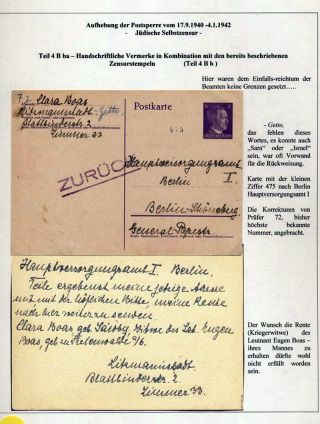 Aufhebung der Postsperre vom 17.9.1940 -4.1.1942
- Jüdische Selbstzensur -
Teil 4 B ba – Handschriftliche Vermerke in Kombination mit den bereits beschriebenen
Zensurstempeln (Teil 4 B b )
Hier waren dem Einfalls-reichtum der
Beamten keine Grenzen gesetzt.....
F. z. Clara Boas
Litzmannstadt-Getto
Blattbinderstr. 2
Zimmer 33
Postkarte
6
ZURÜCK
Hauptversorgungsamt
Berlin I.
Berlin-Schöneberg
General Papestr.
- Getto,
das fehlen dieses
Wortes, es konnte auch
„Sara" oder „Israel"
sein, war oft Vorwand
für die Rückweisung.
Karte mit der kleinen
Ziffer 475 nach Berlin
Hauptversorgungsamt 1
Die Korrekturen von
Prüfer 72, bisher
höchste bekannte
Nummer, angebracht.
Hauptversorgungsamt I. Berlin.
Teile ergebenst meine jetzige Adresse
mit mit der höflichen Bitte, meine Rente
nach hier weiter zu senden.
Clara Boas geb. Witwe des Lt. Eugen
Boas
Litzmannstadt.
Blattbinderstr. 2
Zimmer 33.
Der Wunsch die Rente
(Kriegerwitwe) des
Leutnant Eugen Boas –
ihres Mannes zu
erhalten dürfte wohl
nicht erfüllt worden
sein.